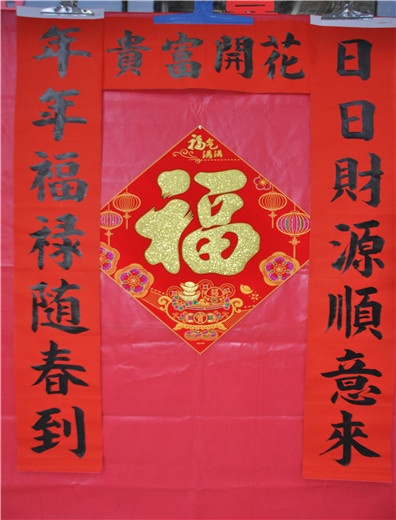 花開富貴
日日財源順意來
年年福禄随春到
福气满满
福